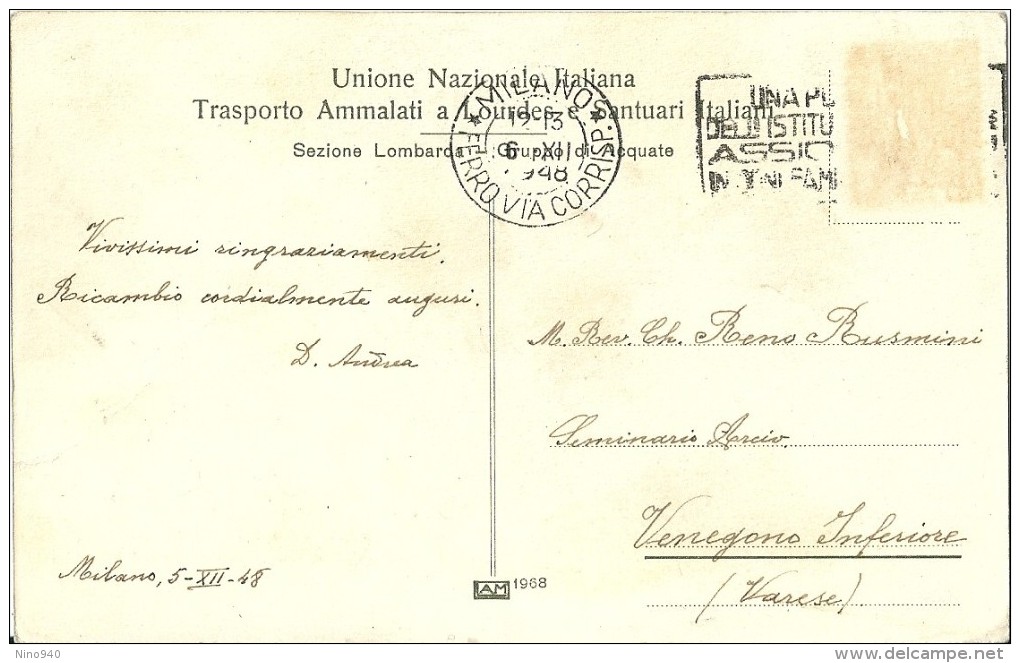 Unione Nazionale Italiana
Trasporto Ammalati a Lourdes e Santuari Italiani
Sezione Lombarda - Gruppo di Acquate
MILANO
12-13
6 XII
1948
FERROVIA CORRISP.
UNA
DELL'ISTITU
IN OGNI FAMI
Vivissimi ringraziamenti.
Ricambio cordialmente auguri.
D. Andrea
Milano, 5-XII-48
M. Rev. Ch. Reno Rusmini
Seminario Arciv.
Venegono Inferiore
(Varese)
AM 1968
Nino940
delcampe.net